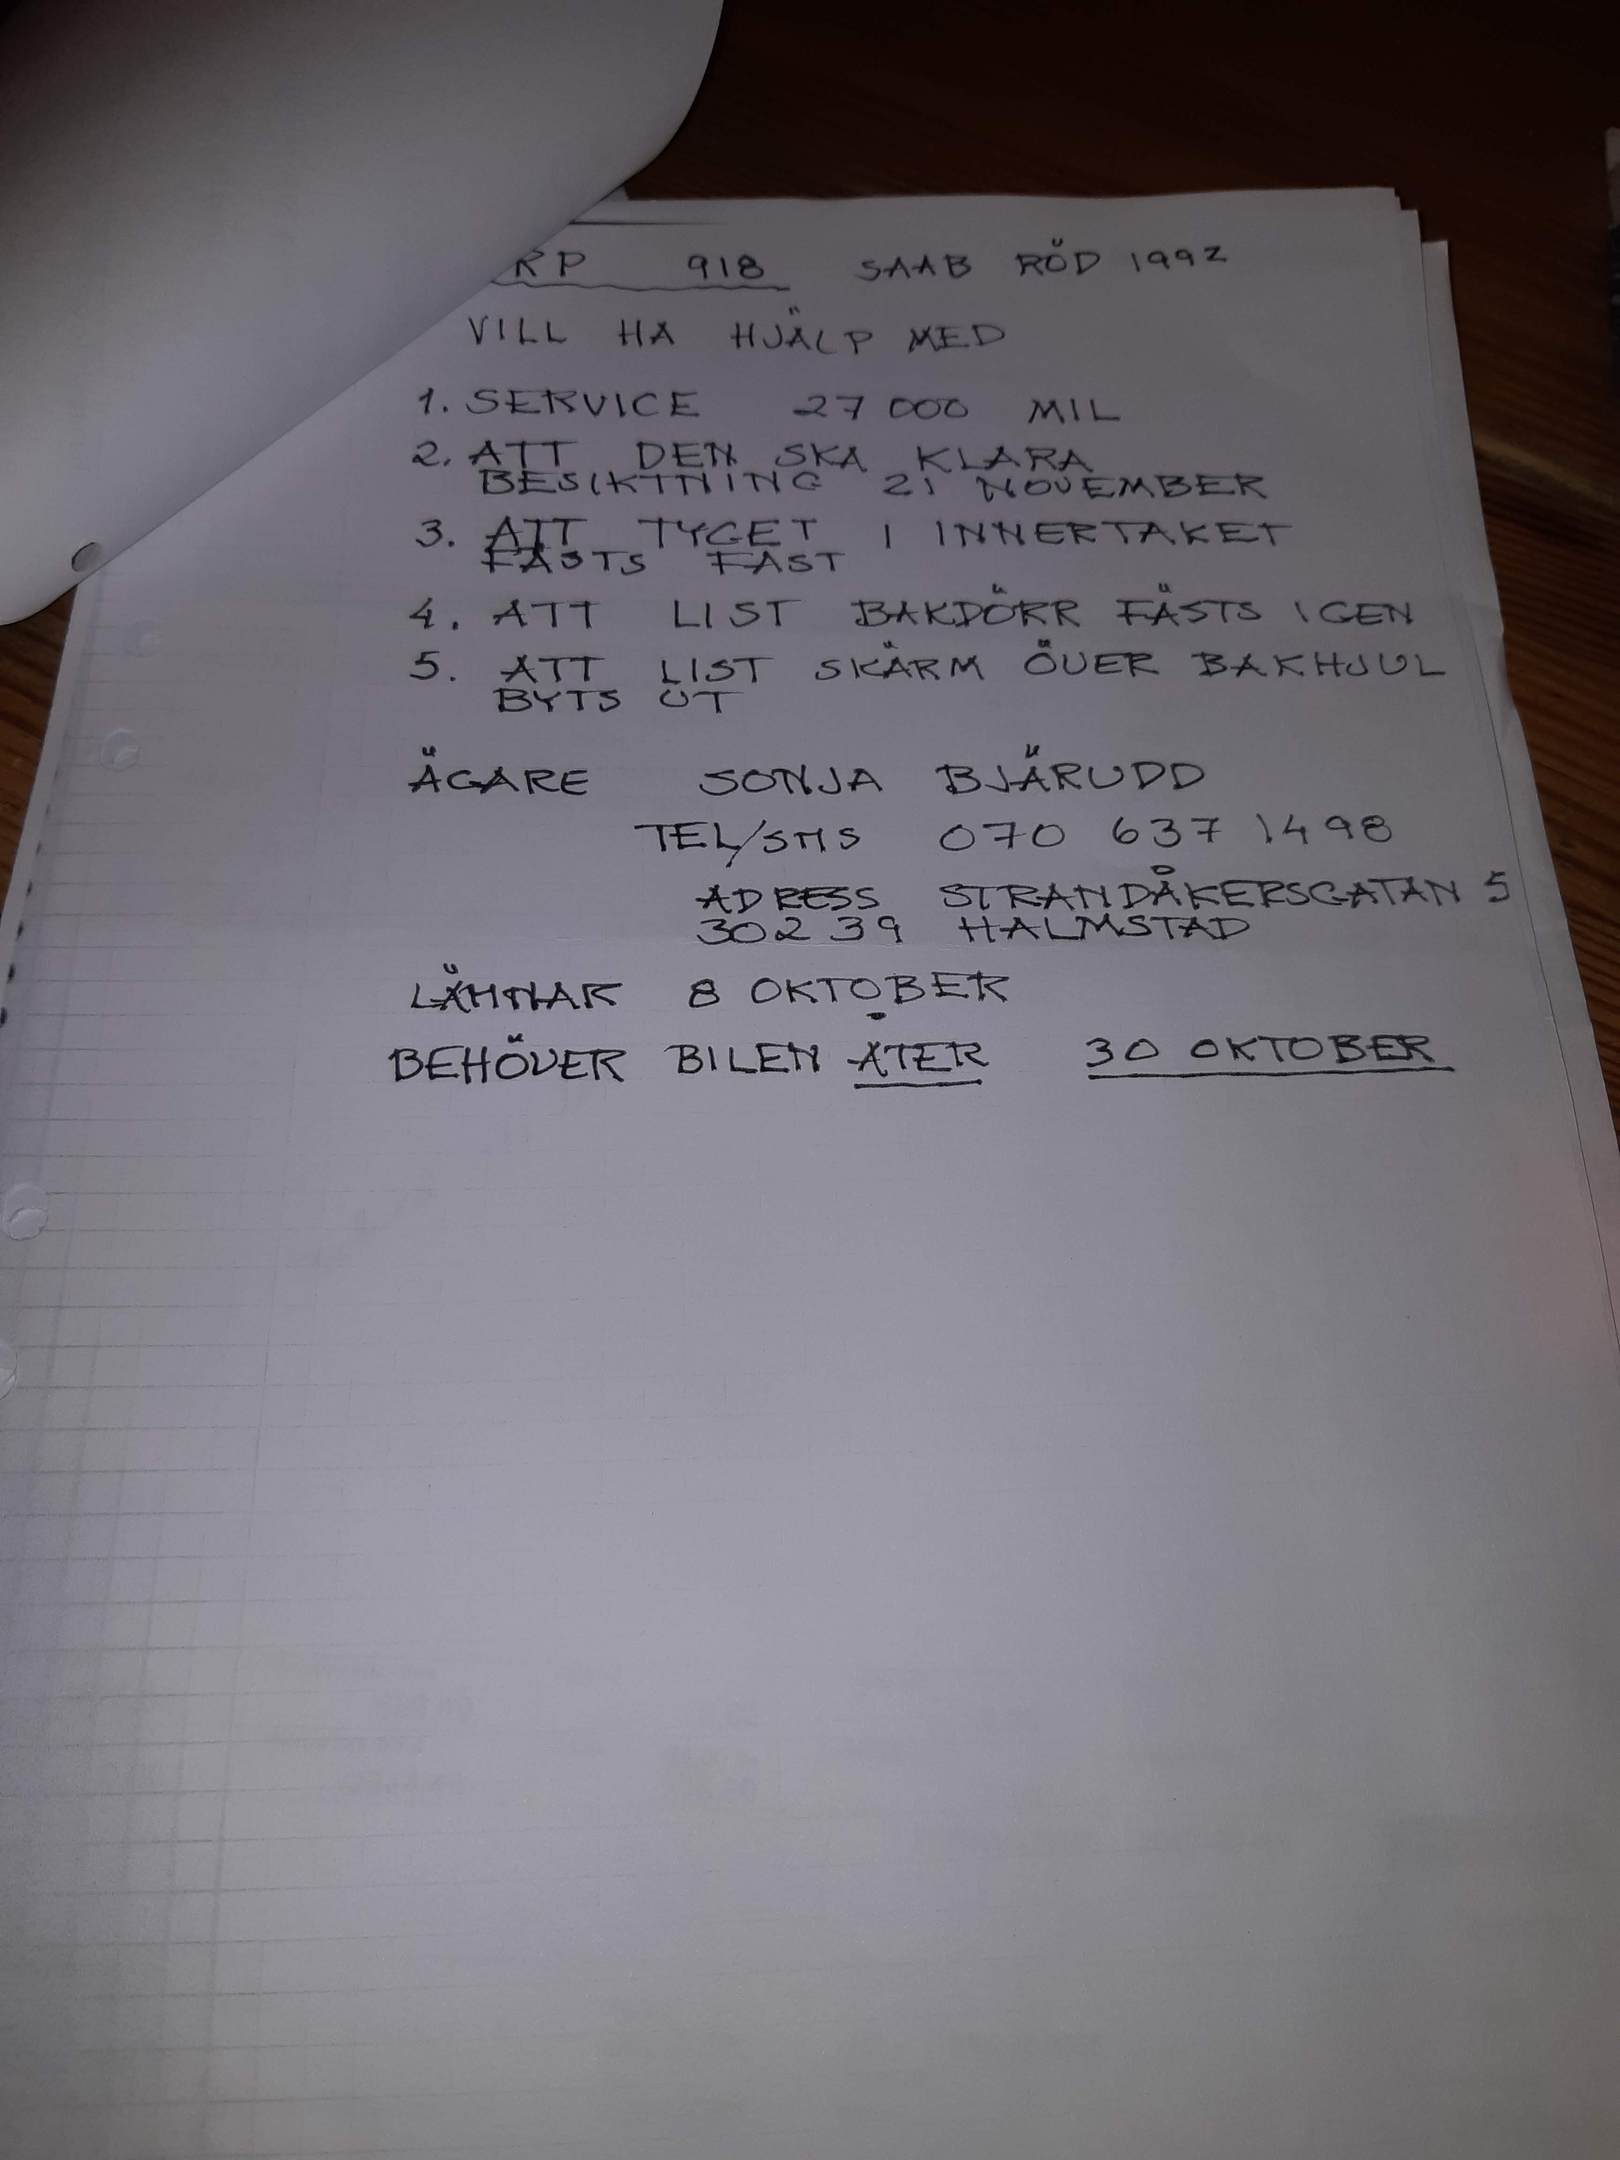 RP 918 SAAB RÖD 1992
VILL HA HJÄLP MED
1. SERVICE 27 000 MIL
2. ATT DEN SKA KLARA
BESIKTNING 21 NOVEMBER
3. ATT TYGET I INNERTAKET
FÄSTS FAST
4. ATT LIST BAKDÖRR FÄSTS IGEN
5. ATT LIST SKÄRM ÖVER BAKHJUL
BYTS UT
ÄGARE SONJA BJÄRUDD
TEL/SMS 070 637 1498
ADRESS STRANDÅKERSGATAN 5
302 39 HALMSTAD
LÄMNAR 8 OKTOBER
BEHÖVER BILEN ÅTER 30 OKTOBER